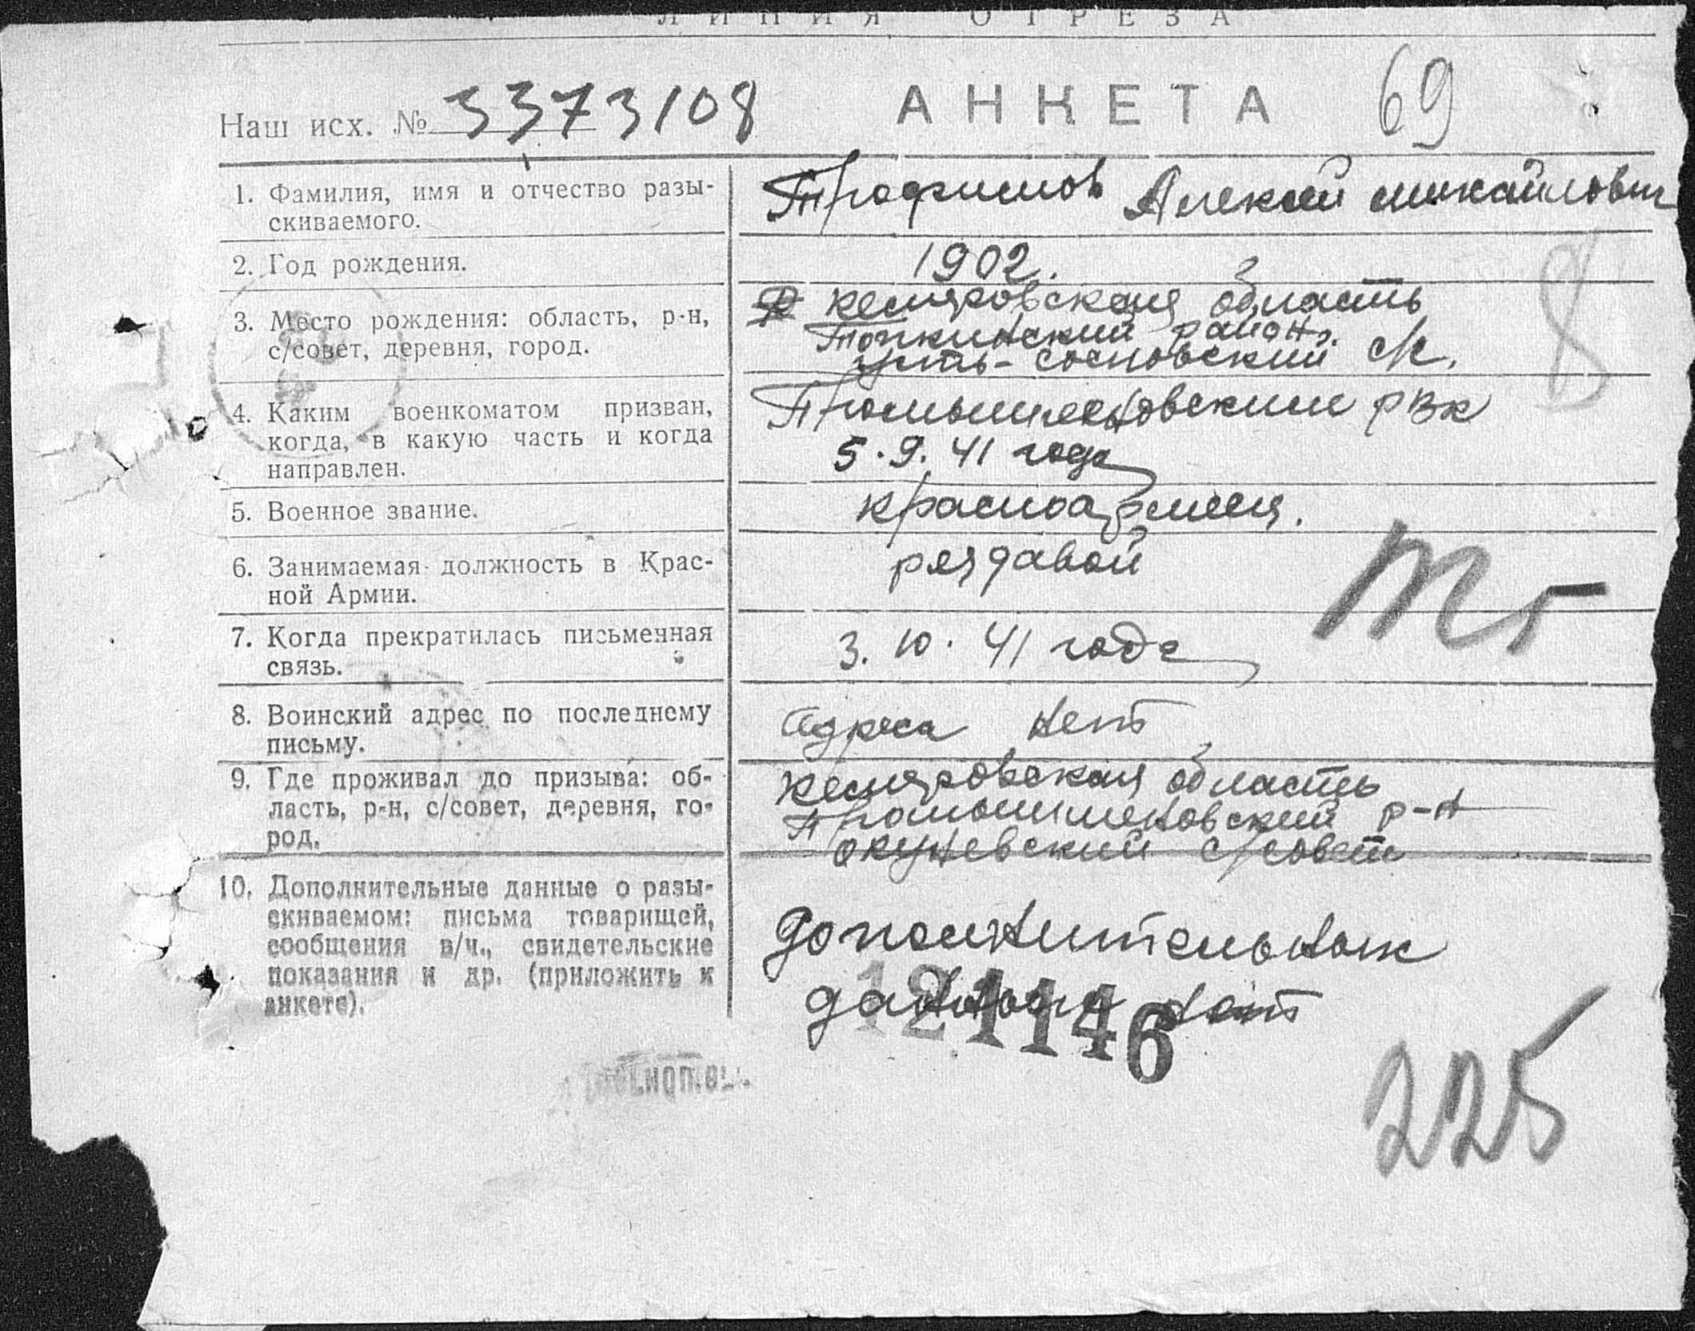 ЛИНИЯ ОТРЕЗА
Наш исх. № 3373108 АНКЕТА 69
1. Фамилия, имя и отчество разы-
скиваемого.
Трофимов Алексей михайлович
2. Год рождения.
1902.
3. Место рождения: область, р-н,
с/совет, деревня, город.
кемеровская область
Топкинский район.
усть-сосновский с/с.
4. Каким военкоматом призван,
когда, в какую часть и когда
направлен.
Промышленовским рвк
5.9.41 года
5. Военное звание.
красноармеец.
6. Занимаемая должность в Крас-
ной Армии.
рядавой
7. Когда прекратилась письменная
связь.
3.10.41 года
8. Воинский адрес по последнему
письму.
Адреса нет
9. Где проживал до призыва: об-
ласть, р-н, с/совет, деревня, го-
род.
кемеровская область
Промышленовский р-н
окуневский с/совет
10. Дополнительные данные о разы-
скиваемом: письма товарищей,
сообщения в/ч., свидетельские
показания и др. (приложить к
анкете).
Дополнительных
данных нет
121146
225